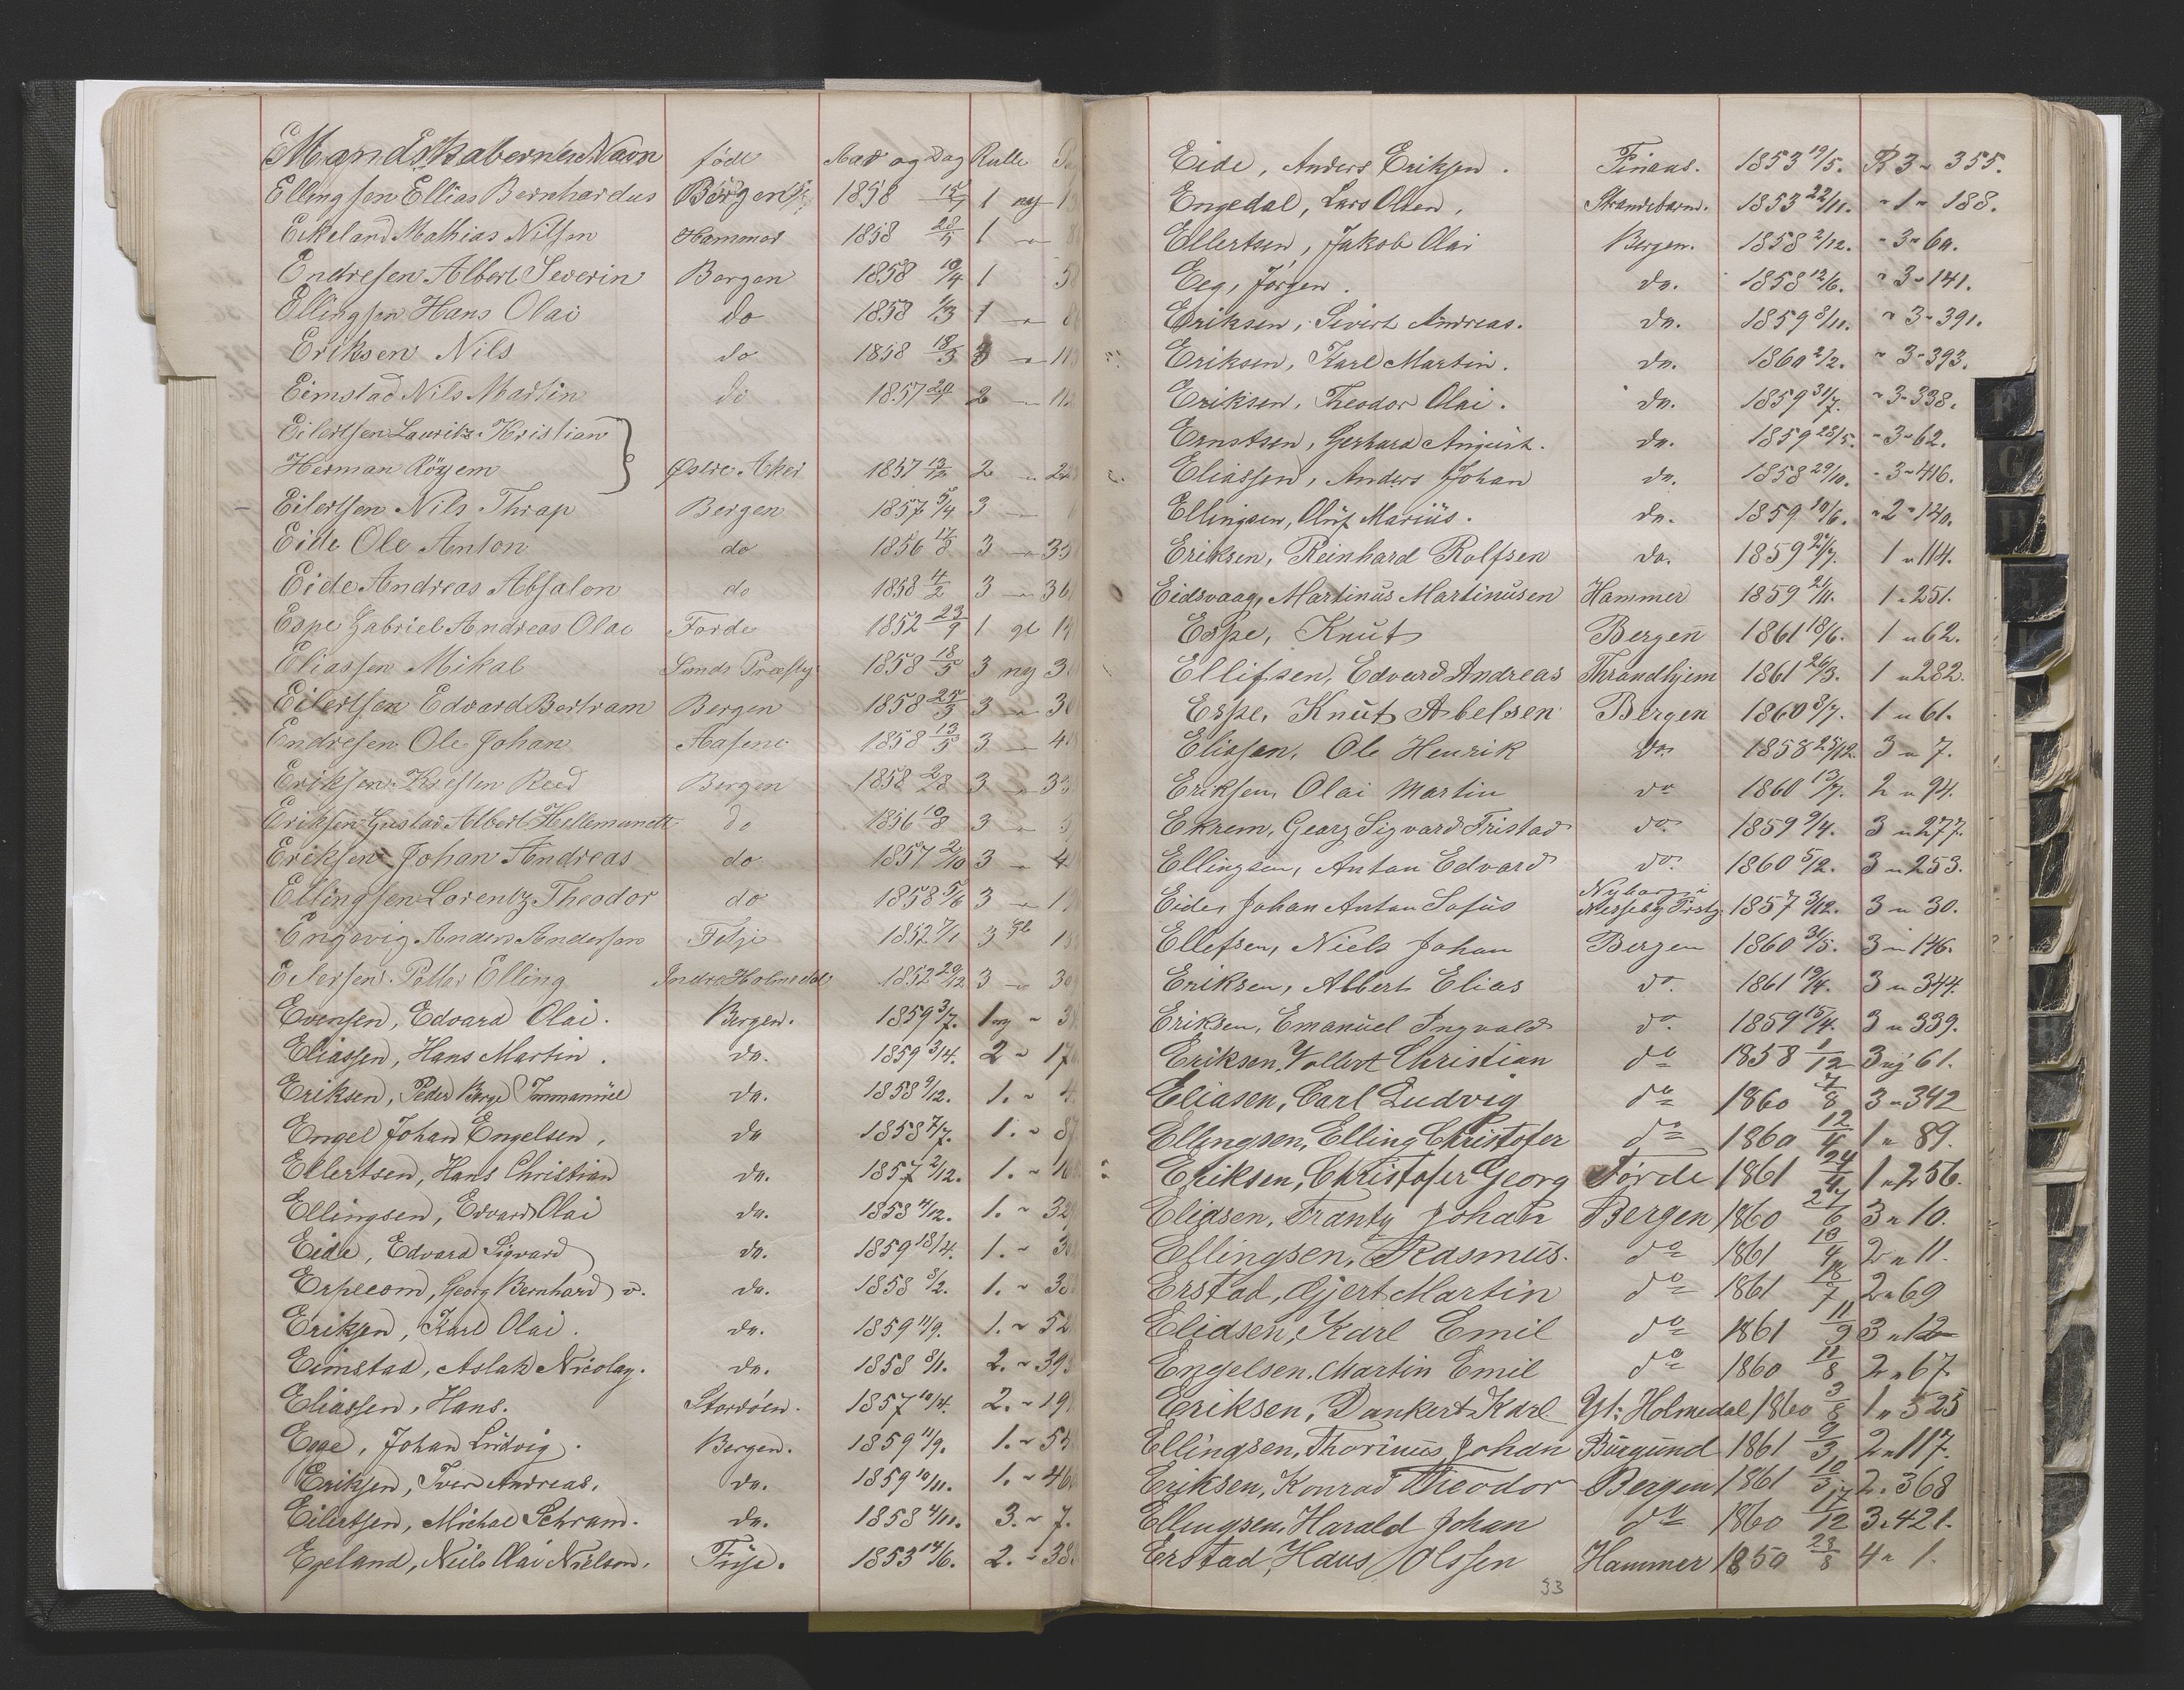 E Mandskabernes Navn født Aar og Dag Rulle
Ellingsen Ellias Bernhardus Bergen 1858 15/7 1 ny
Eikeland Mathias Nilsen Hammer 1858 28/5 1 "
Endresen Albert Severin Bergen 1858 19/4 1
Ellingsen Hans Olai do 1858 1/3 1 "
Eriksen Nils do 1858 18/3 3 "
Eimstad Nils Martin do 1857 29/7 2 "
Eilertsen Lauritz Kristian
Herman Röyem Østre Aker 1857 13/12 2 "
Eilertsen Nils Thrap Bergen 1857 5/4 3 "
Eide Ole Anton do 1856 17/8 3 "
Eide Andreas Absalon do 1858 4/2 3 "
Espe Gabriel Andreas Olai Förde 1852 23/9 1 gl
Eliassen Mikal Sunds Præstg 1858 18/5 3 ny
Eilertsen Edvard Bertram Bergen 1858 25/3 3 "
Endresen Ole Johan Aasene 1858 13/5 3 "
Eriksen Kresten Reed Bergen 1858 2/8 3 "
Eriksen Gustav Albert Hellemundt do 1856 10/8 3 "
Eriksen Johan Andreas do 1857 2/10 3 "
Ellingsen Lorentz Theodor do 1858 5/6 3 "
Engevig Anders Anderson Fitje 1852 7/1 3 gl
Eilersen Petter Elling Indre Holmedal 1852 29/12 3 "
Evensen, Edvard Olai. Bergen. 1859 3/7. 1 ny "
Eliassen, Hans Martin. do. 1859 3/4. 2 "
Eriksen, Peder Berge Immanüel do. 1858 9/12. 1. "
Engel Johan Engelsen, do 1858 7/7. 1. "
Ellertsen, Hans Christian do. 1857 2/12. 1. "
Ellingsen, Edvard Olai do. 1858 4/12. 1. "
Eide, Edvard Sigvard do. 1859 18/4. 1. "
Erpecom, Georg Bernhard v. do. 1858 8/2. 1. "
Eriksen, Karl Olai. do. 1859 11/9. 1. "
Eimstad, Aslak Nicolay. do. 1858 8/11. 2. "
Eliassen, Hans. Stordöen. 1857 10/4. 2. "
Egge, Johan Lüdvig. Bergen. 1859 11/9. 1. "
Eriksen, Iver Andreas. do. 1859 10/11. 1. "
Eilertsen, Michal Schram. do. 1858 4/11. 3. " 7.
Egeland, Neils Olai Nielsen, Füse. 1853 14/6. 2. "
Eide, Anders Eriksen. Finaas. 1853 19/5. R 3 " 355.
Engedal, Lars Olsen, Strandebarm. 1853 22/11. " 1 " 188.
Ellertsen, Jakob Olai Bergen. 1858 2/12. " 3 " 60.
Eeg, Jörgen. do. 1858 12/6. " 3 " 141.
Eriksen, Sivert Andreas. do. 1859 8/11. " 3 " 391.
Eriksen, Karl Martin. do. 1860 2/2. " 3 " 393.
Eriksen, Theodor Olai. do. 1859 31/7. " 3 " 338.
Ernstsen, Gerhard Aügüst. do. 1859 28/5. " 3 " 62.
Eliassen, Anders Johan do. 1858 29/10. " 3 " 416.
Ellingsen, Olüf Mariüs. do. 1859 10/6. " 2 " 140.
Eriksen, Reinhard Rolfsen do. 1859 24/7. 1 " 114.
Eidsvaag, Martinüs Martinüsen Hammer 1859 2/11. 1 " 251.
Espe, Knüt Bergen 1861 18/6. 1 " 62.
Ellifsen, Edvard Andreas Throndhjem 1861 26/3. 1 " 282.
Espe, Knüt Abelsen Bergen 1860 8/7. 1 " 61.
Eliassen, Ole Henrik do. 1858 25/12 3 " 7.
Eriksen, Olai Martin do 1860 13/7. 2 " 94.
Ekrem, Georg Sigvard Fristad do. 1859 9/4. 3 " 277.
Ellingsen, Anton Edvard do. 1860 5/12. 3 " 253.
Eide, Johan Anton Sofüs Nyborg i Nesseby Prstg. 1857 3/12. 3 " 30.
Ellefsen, Niels Johan Bergen 1860 31/5. 3 " 146.
Eriksen, Albert Elias do. 1861 19/4. 3 " 344.
Eriksen, Emanüel Ingvald do. 1859 15/4. 3 " 339.
Eriksen, Vollert Christian do 1858 1/12 3 ny 61.
Eliasen, Carl Ludvig do 1860 7/8 3 " 342
Ellingsen, Elling Christofer do 1860 12/4 1 " 89.
Eriksen, Christofer Georg Førde 1861 24/4 1 " 256.
Eliasen, Frantz Johan Bergen 1860 27/6 3 " 10.
Ellingsen, Rasmüs. do 1861 10/4 2 " 11.
Erstad, Gjert Martin do 1861 18/7 2 " 69
Eliasen, Karl Emil do 1861 11/9 3 " 12
Engelsen, Martin Emil do 1860 11/8 2 " 67
Eriksen, Dankert Karl Yt: Holmedal 1860 3/8 1 " 525
Ellingsen, Thorinüs Johan Bürgünd 1861 9/3 2 " 117.
Eriksen, Konrad Theodor Bergen 1861 10/3 2 " 368
Ellingsen, Harald Johan do 1860 17/12 3 " 421.
Erstad, Hans Olssen Hammer 1850 23/8 4 " 1.
33
F
G
H
J
K